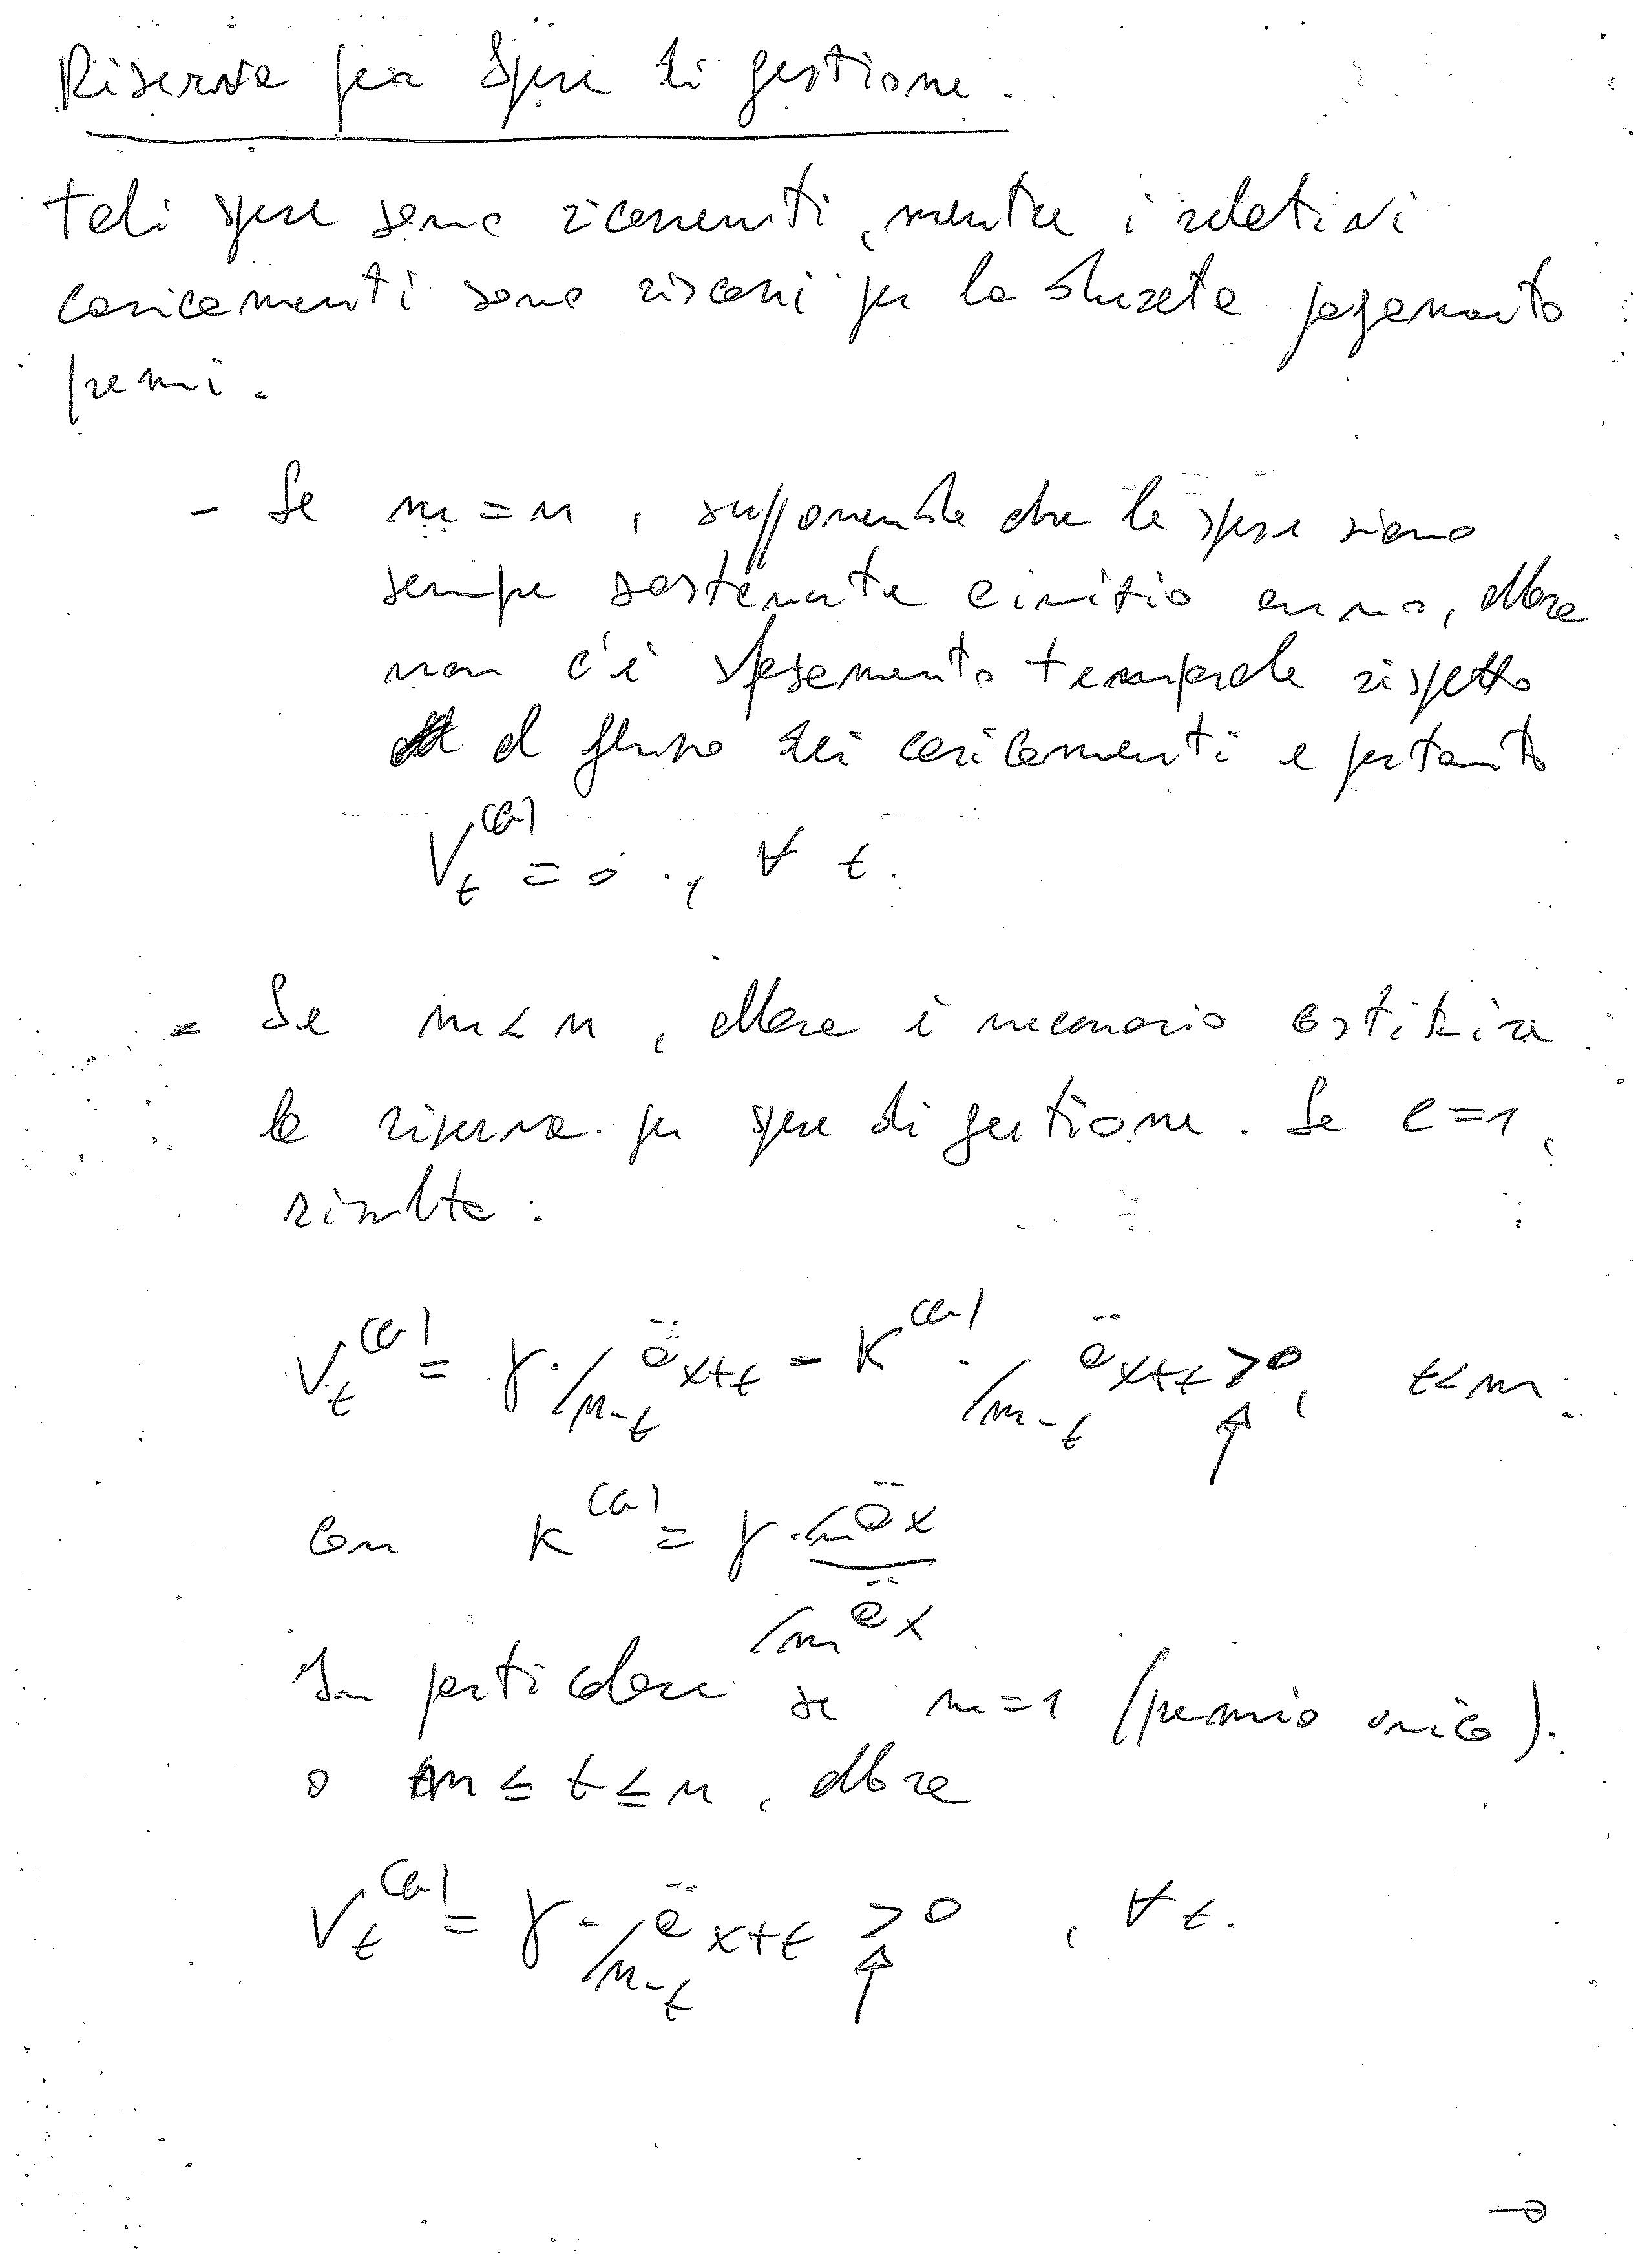 Riserva per spese di gestione.
Tali spese sono ricorrenti, mentre i relativi
caricamenti sono riscossi per la durata pagamento
premi.
- Se m = n, supponendo che le spese siano
sempre sostenute a inizio anno, allora
non c'è sfasamento temporale rispetto
al flusso dei caricamenti e pertanto
V_t^(G) = 0, ∀ t.
- Se m < n, allora è necessario costituire
la riserva per spese di gestione. Se C=1,
risulta:
V_t^(G) = γ · /n-t ä x+t - K^(G) · /m-t ä x+t > 0, t < m.
↑
con K^(G) = γ · /n ä x
/m ä x
In particolare se m = 1 (premio unico)
o m ≤ t ≤ n, allora
V_t^(G) = γ · /n-t ä x+t > 0, ∀ t.
↑
→